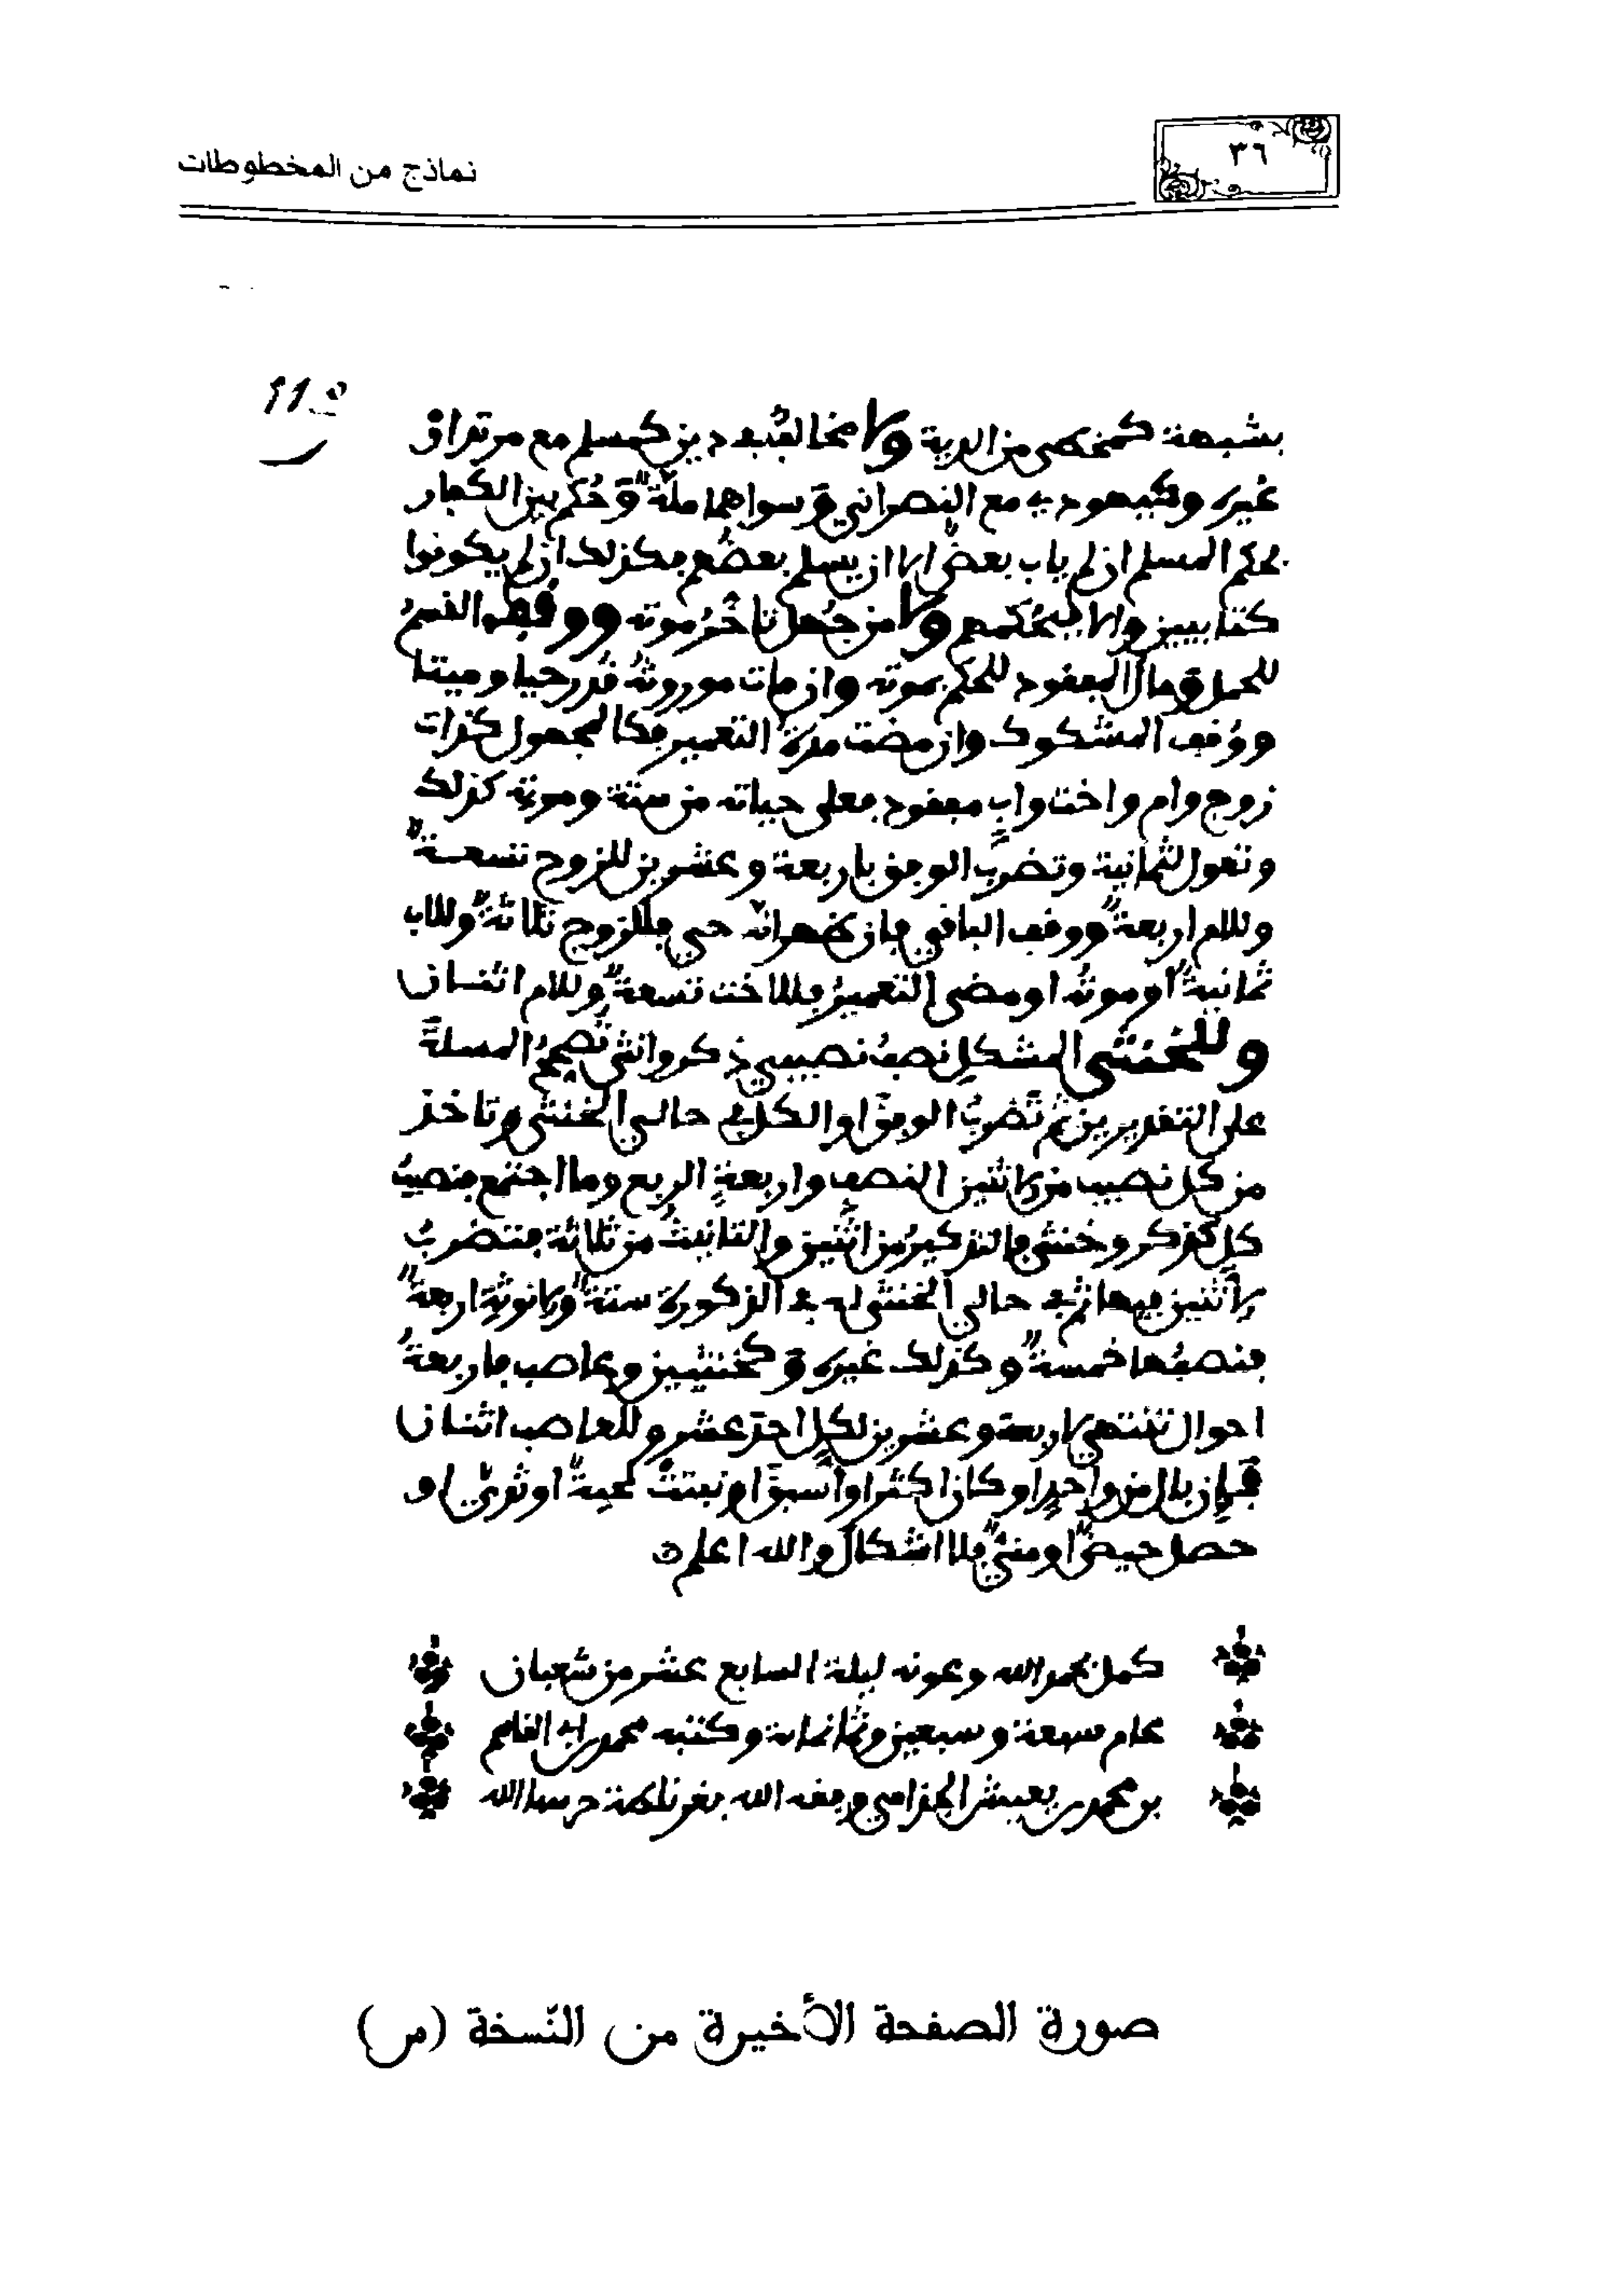 ٣٦
نماذج من المخطوطات
بشبهة كمخطئ من الدية ولا مخالف في دين كمسلم مع مرتد او
غيره وكيهودي مع النصراني وسواهما ملةٌ وحُكم بين الكفار
بحكم المسلم ان لم ياب بعضٌ الا ان يسلم بعضهم فكذلك ان لم يكونوا
كتابيين والا فبحكمهم ولا من جُهل تاخُّر موته ووُقف القسمُ
للحمل ومال المفقود للحكم بموته وان مات موروثه قُدر حيا وميتا
ووُقف المشكوك وان مضت مدة التعمير فكالمجهول كذات
زوج وام واخت واب مفقود فعلى حياته من ستة وموته كذلك
وتعول لثمانية وتضرب الوفق باربعة وعشرين للزوج تسعةٌ
وللام اربعةٌ ووقف الباقي فان ظهر انه حي فللزوج ثلاثةٌ وللاب
ثمانيةٌ او موته او مضى التعمير فللاخت تسعةٌ وللام اثنان
وللخنثى المشكل نصف نصيبي ذكر وانثى تصحح المسلة
على التقديرين ثم تضرب الوفق او الكل في حالي الخنثى وتاخذ
من كل نصيب من الاثنين النصف واربعةٍ الربع وما اجتمع فنصيبُ
كلٍ كذكر وخنثى فالتذكيرُ من اثنين والتانيثُ من ثلاثة فتضربُ
الاثنين فيها ثم في حالي الخنثى له في الذكورة ستةٌ والانوثة اربعةٌ
فنصفها خمسةٌ وكذلك غيره وكخنثيين وعاصب فاربعةُ
احوال تنتهي لاربعة وعشرين لكلٍ احدَ عشر وللعاصب اثنان
فان بال من واحدٍ او كان اكثر او اسبق او نبتت لحيةٌ او ثدي او
حصل حيضٌ او منيٌ فلا اشكال والله اعلم
كمل بحمد الله وعونه ليلة السابع عشر من شعبان
عام وسبعين وثمانمائة وكتبه محمد بن القاسم
بن محمد بن يعيش الجذامي وفقه الله بغرناطة حرسها الله
صورة الصفحة الأخيرة من النّسخة (س)